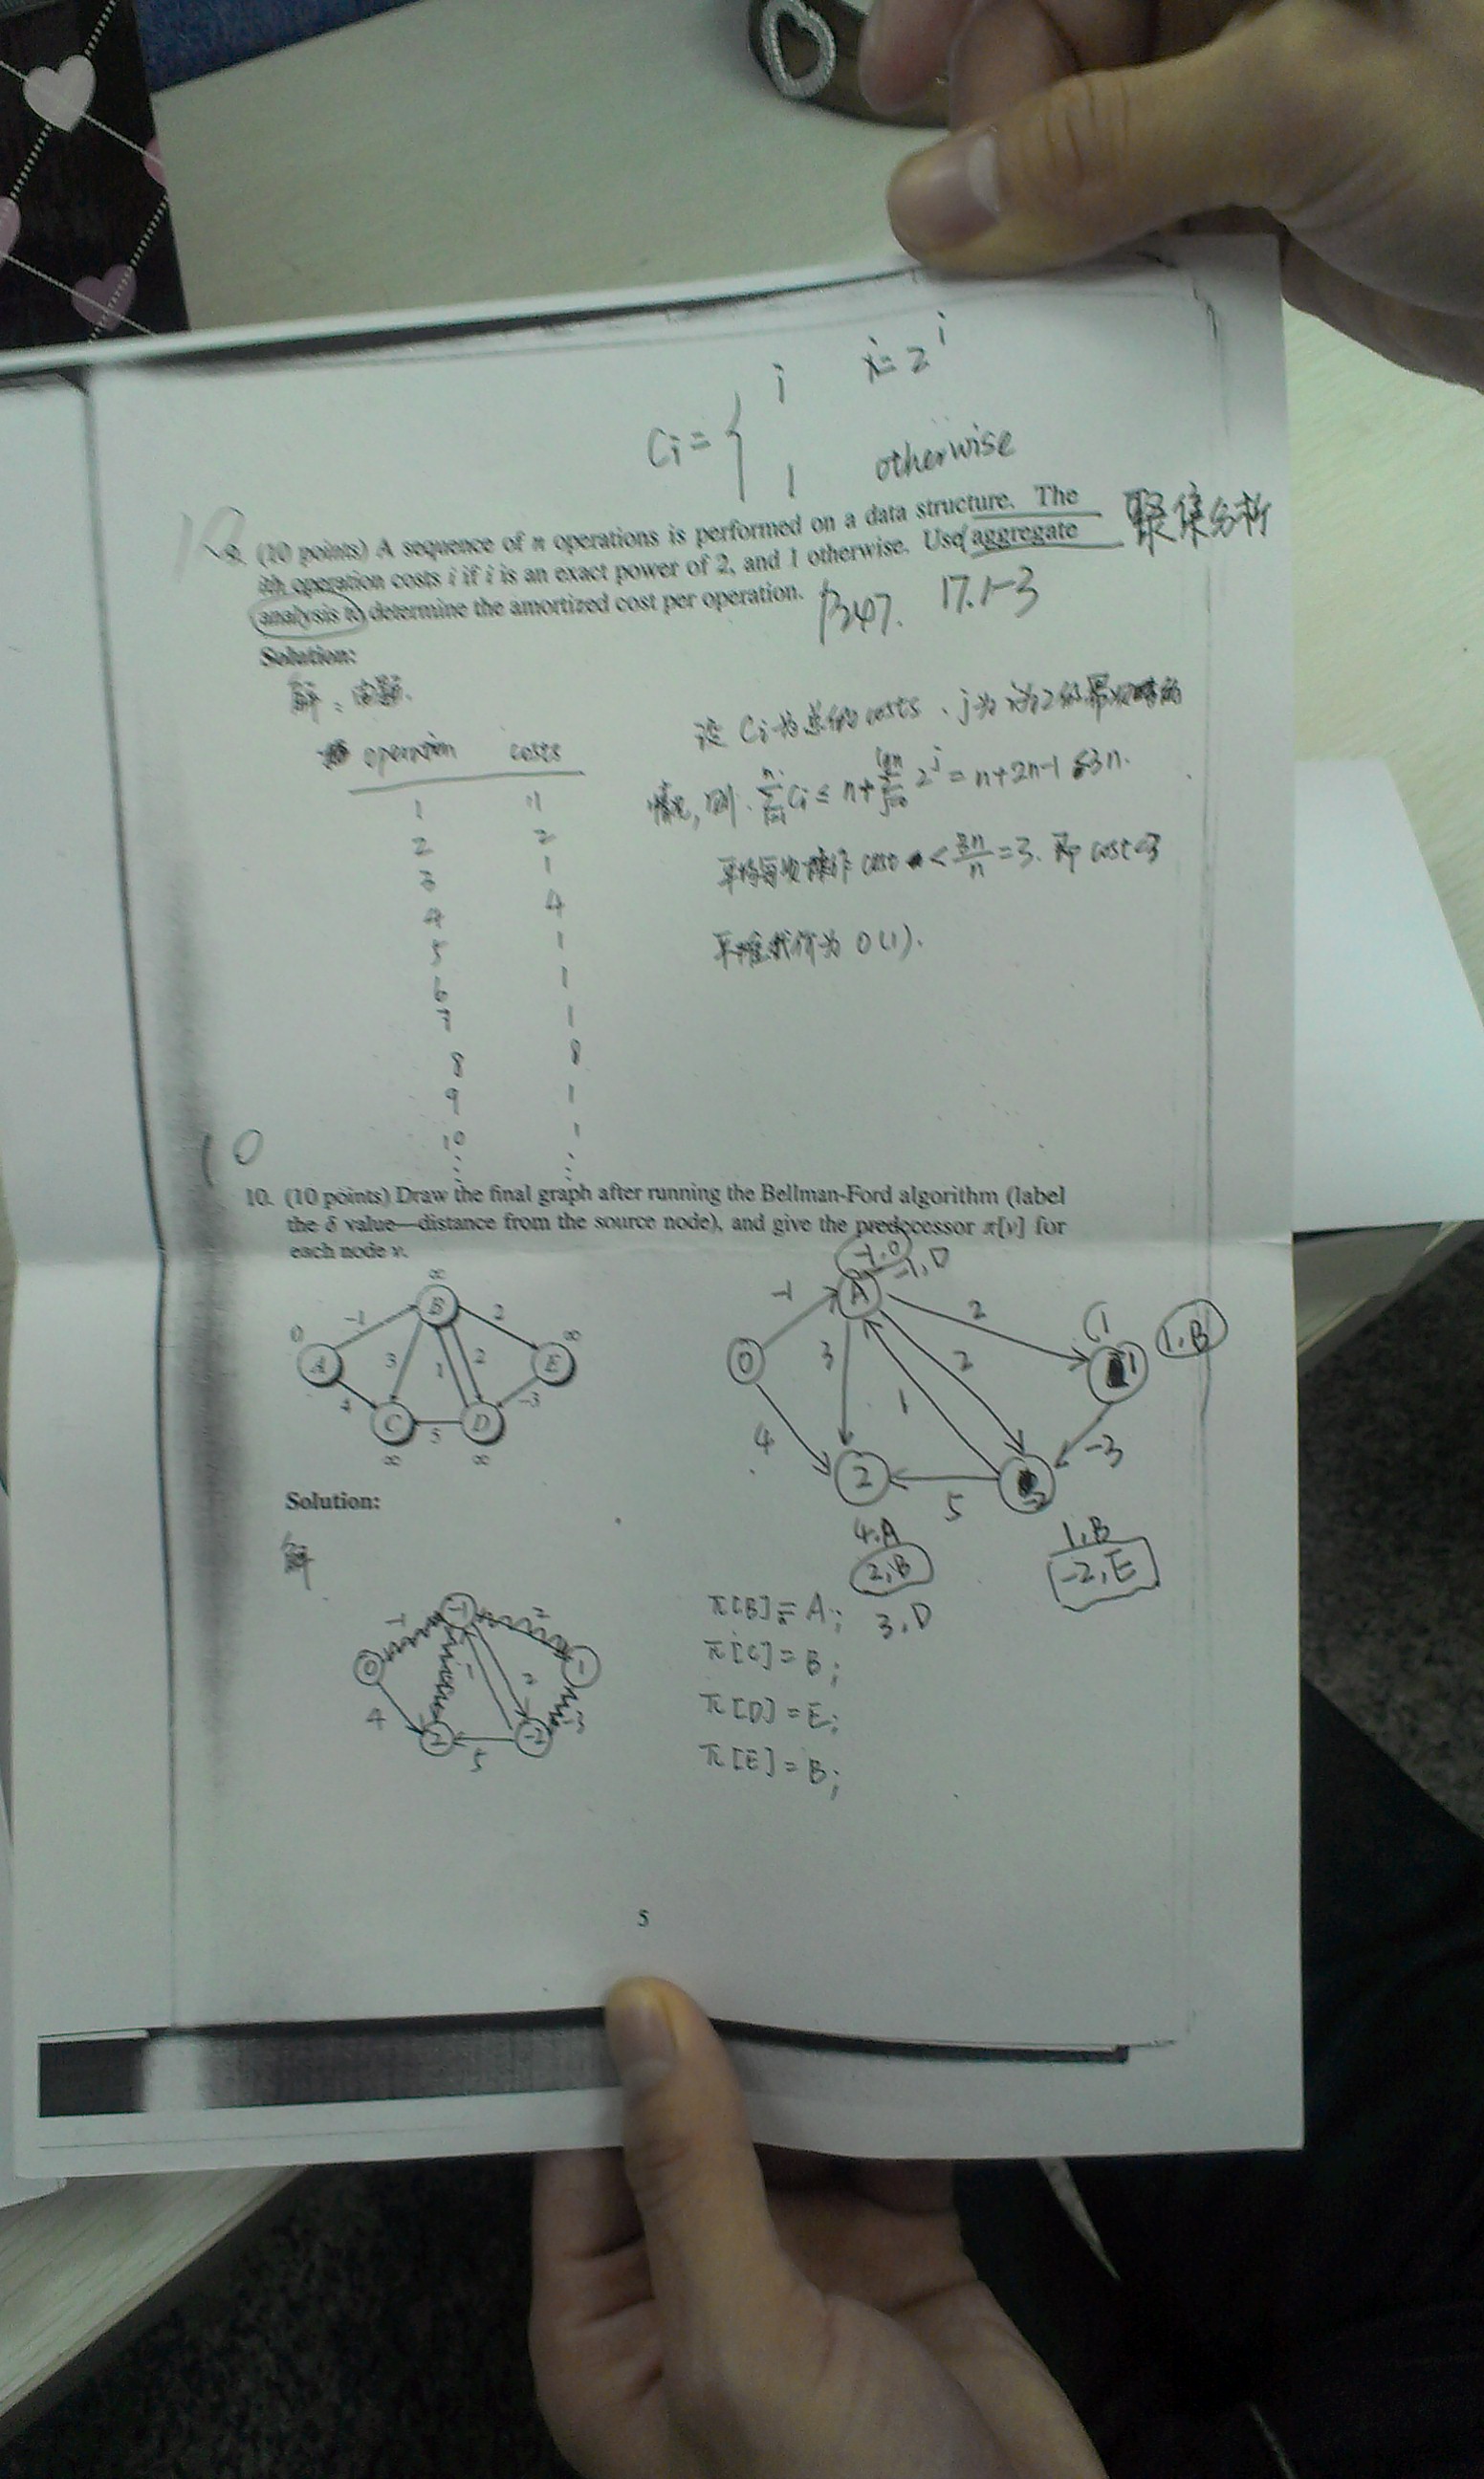 Ci = { i i=2^i
1 otherwise
9. (10 points) A sequence of n operations is performed on a data structure. The
ith operation costs i if i is an exact power of 2, and 1 otherwise. Use aggregate
analysis to determine the amortized cost per operation.
聚集分析
P247. 17.1-3
Solution:
解:由题.
operation costs
1 1
2 2
3 1
4 4
5 1
6 1
7 1
8 8
9 1
10 1
⋮ ⋮
设 Ci 为总的 costs、j 为 为2的幂
情况, 则. Σ Ci ≤ n + Σ 2^j = n+2n-1 ≤3n.
平均每次操作 cost < 3n/n = 3. 即 cost 3
平摊代价为 O(1).
10
10. (10 points) Draw the final graph after running the Bellman-Ford algorithm (label
the δ value—distance from the source node), and give the predecessor π[v] for
each node v.
∞
0 -1 B 2 ∞
A 3 1 2 E
4 C 5 D -3
∞ ∞
-1,0
-1,D
-1 A 2 1 1,B
0 3 2 1
4 1 -3
2 5
4,A 1,B
2,B -2,E
3,D
Solution:
解
-1 -1 2
0 1 2 1
4 2 5 -2 -3
π[B]=A;
π[C]=B;
π[D]=E;
π[E]=B;
5